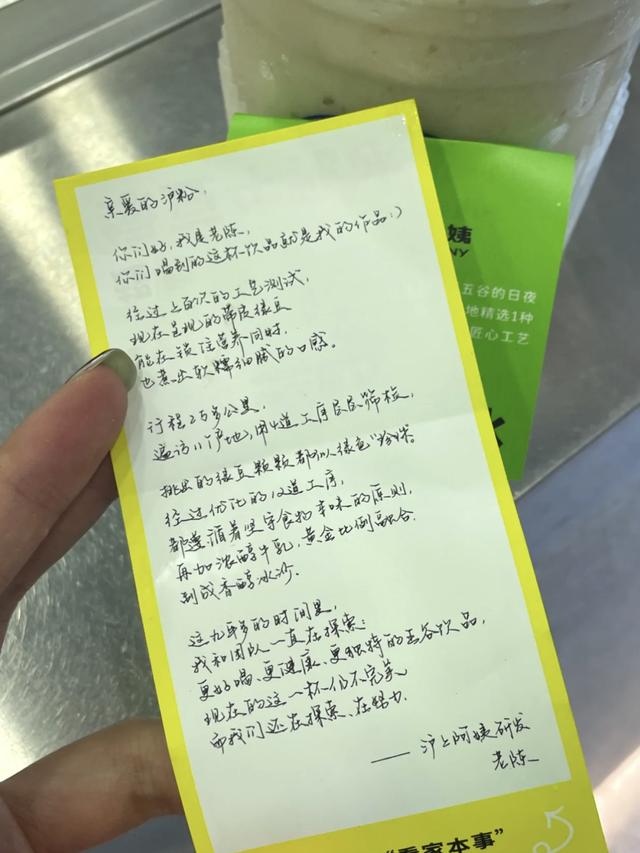 亲爱的沪粉，
你们好，我是老陈，
你们喝到的这杯饮品就是我的作品:）
经过上百次的工艺测试
现在呈现的带皮绿豆
能在锁住营养同时，
也煮出软糯细腻的口感。
行程2万多公里，
遍访11个产地，用4道工序层层筛检，
挑出的绿豆颗颗都似绿色“珍珠”。
经过优化的10道工序，
都遵循着坚守食物本味的原则，
再加浓醇牛乳，黄金比例融合，
制成香醇冰沙.
这九年多的时间里，
我和团队一直在探索：
更好喝、更健康、更独特的五谷饮品，
现在的这一杯仍不完美
而我们还在探索、在努力.
——沪上阿姨研发
老陈
“看家本事”
姨
NY
五谷的日夜
地精选1种
匠心工艺